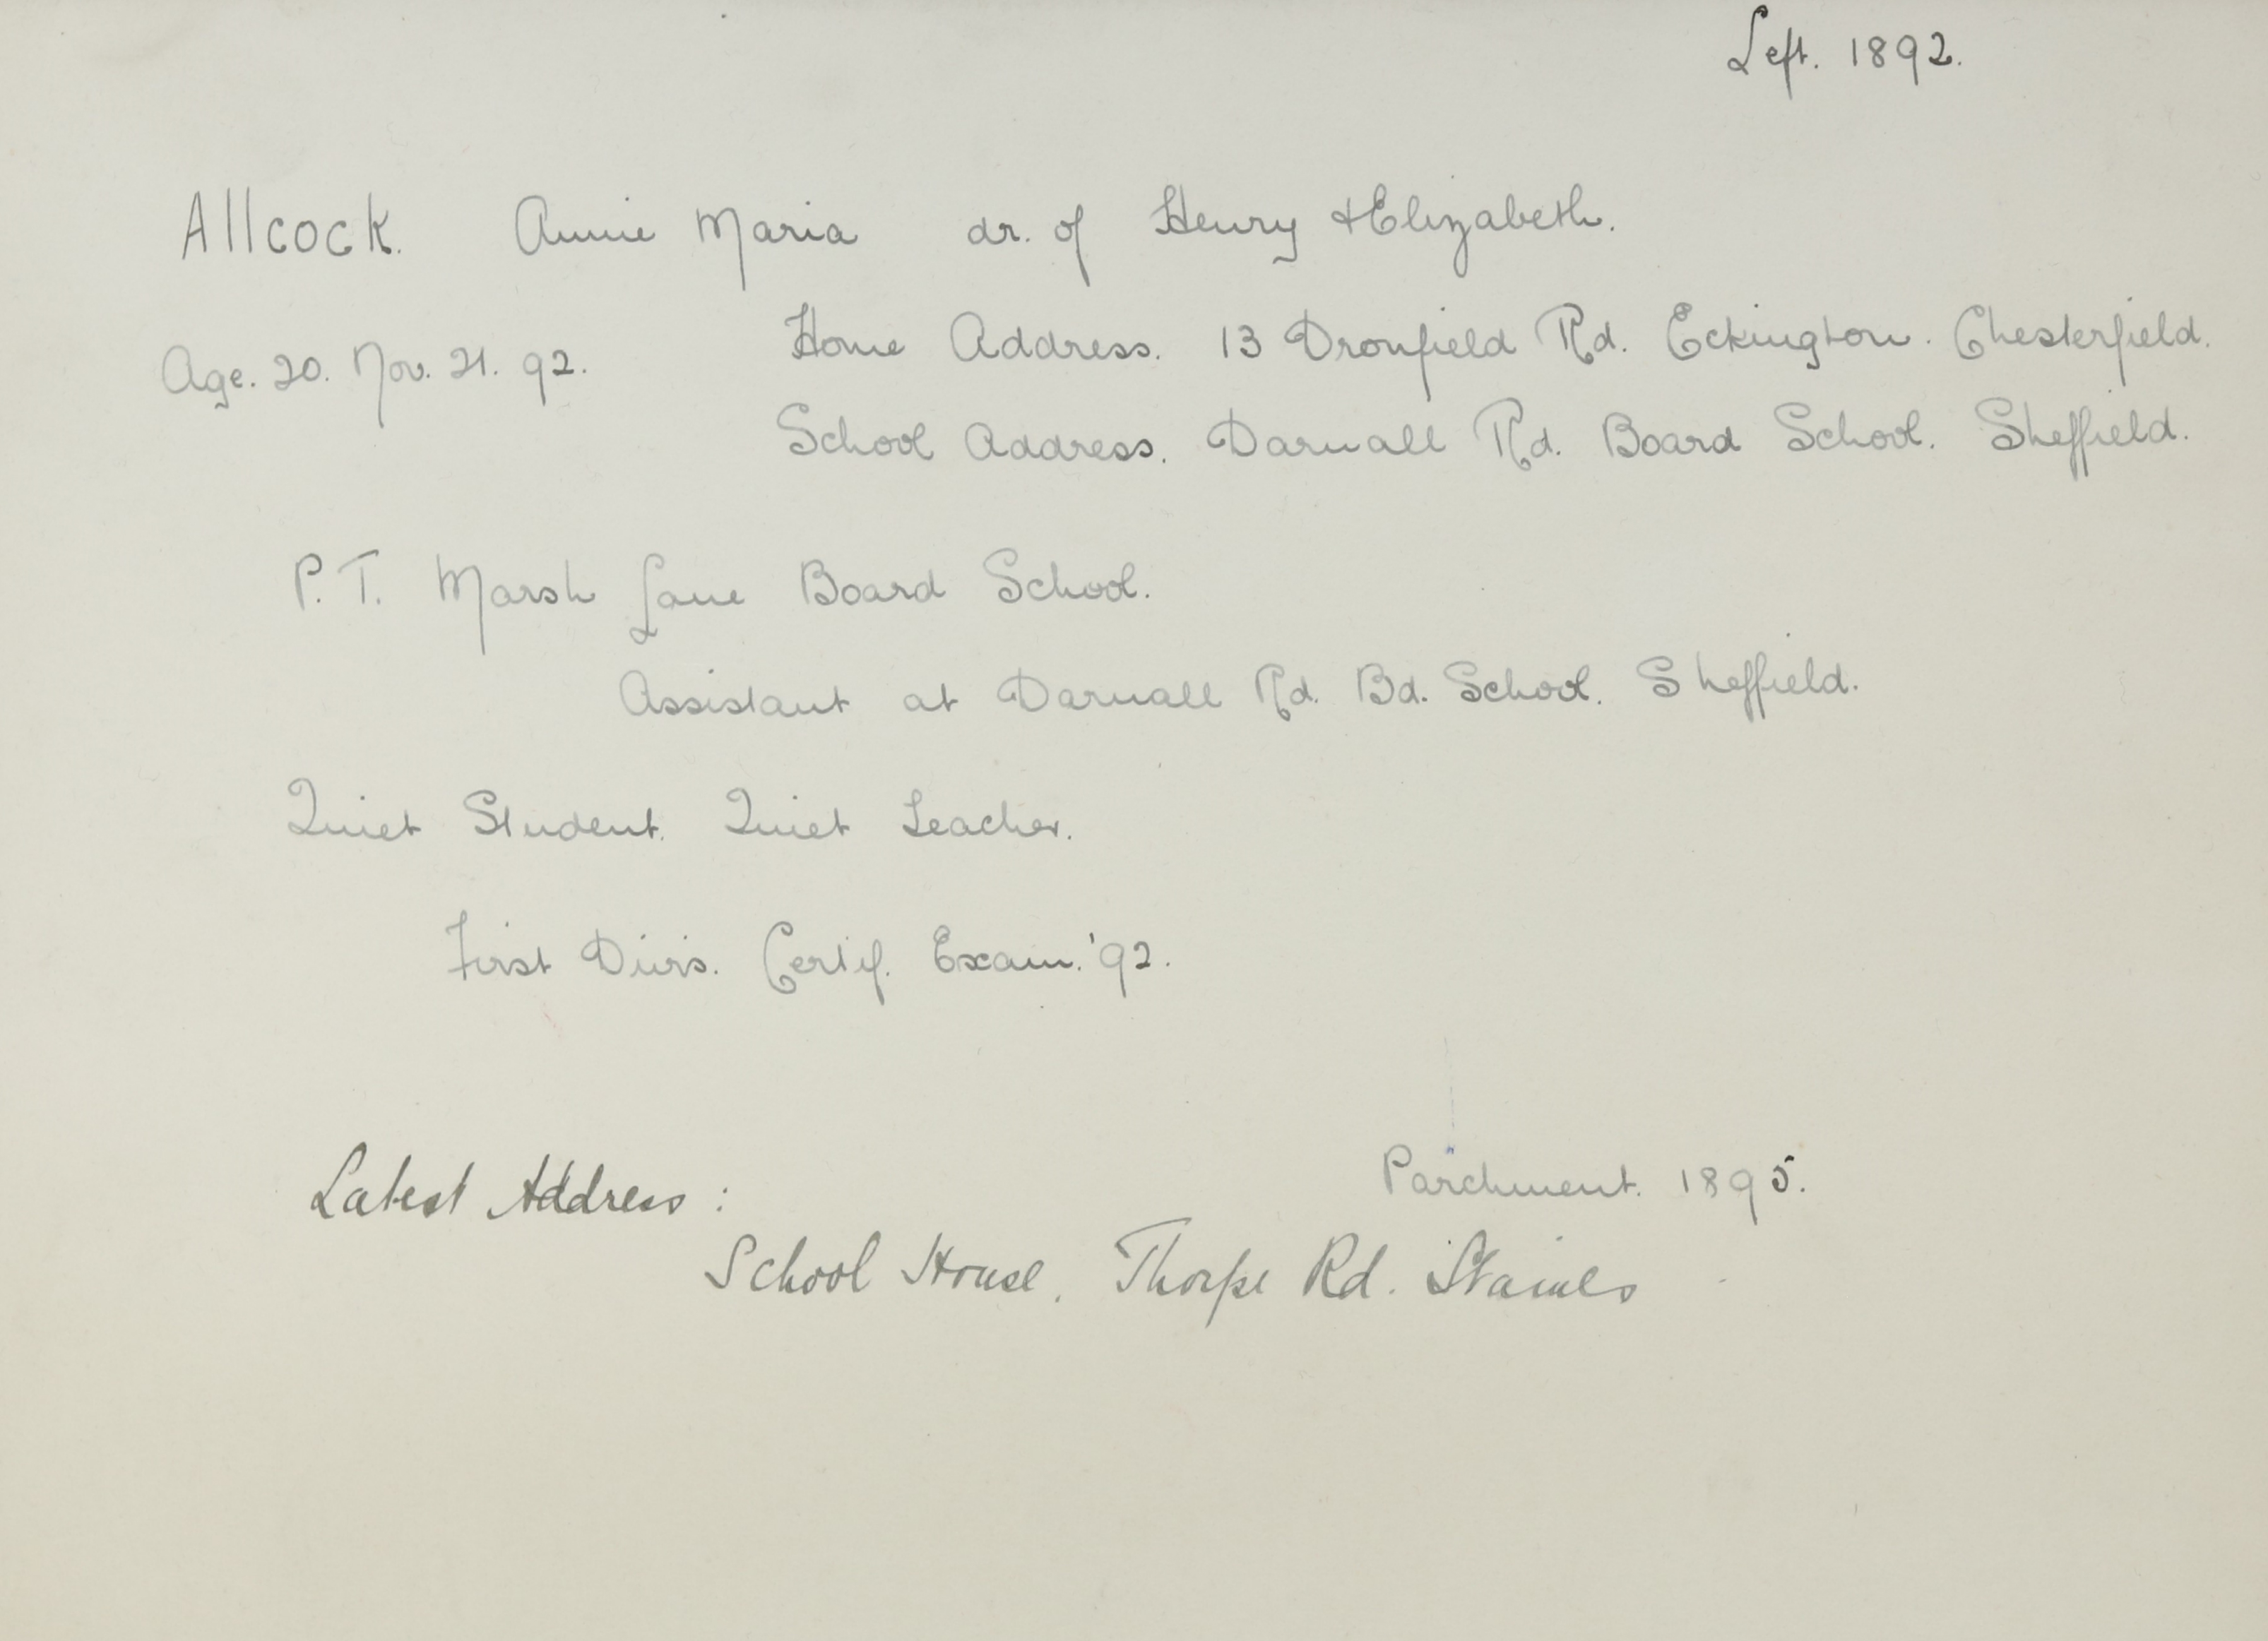 Left. 1892.
Allcock. Annie Maria dr. of Henry & Elizabeth.
Home Address. 13 Dronfield Rd. Eckington. Chesterfield.
Age. 20. Nov. 21. 92.
School Address. Darnall Rd. Board School. Sheffield.
P. T. Marsh Lane Board School.
Assistant at Darnall Rd. Bd. School. Sheffield.
Quiet Student. Quiet Teacher.
First Divis. Certif. Exam. '92.
Parchment. 1895.
Latest Address :
School House, Thorpe Rd. Staines